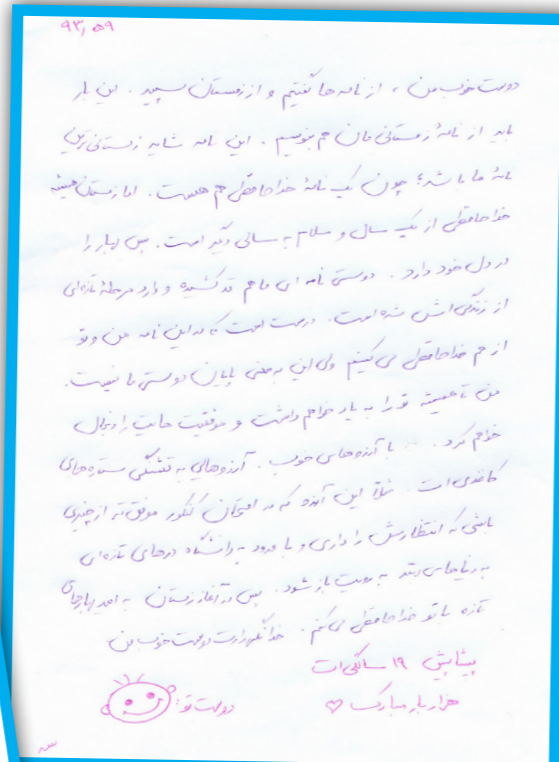 ۹۳,۵۹
دوست خوب من ، از نامه ها گفتیم و از زمستان سپید . این بار
باید از نامهٔ زمستانی مان هم بنویسیم . این نامه شاید زمستانی ترین
نامهٔ ما باشد؛ چون یک نامهٔ خداحافظی هم هست . اما زمستان همیشه
خداحافظی از یک سال و سلام به سالی دیگر است . پس بهار را
در دل خود دارد . دوستی نامه ای ما هم قد کشیده و وارد مرحلهٔ تازه ای
از زندگی اش شده است . درست است که در این نامه من و تو
از هم خداحافظی می کنیم ولی این به معنی پایان دوستی ما نیست .
من تا همیشه تو را به یاد خواهم داشت و موفقیت هایت را دنبال
خواهم کرد . با آرزوهای خوب . آرزوهایی به قشنگی ستاره های
کاغذی ات . مثلاً این آرزو که در امتحان کنکور موفق تر از چیزی
باشی که انتظارش را داری و با ورود به دانشگاه درهای تازه ای
به دنیاهای به رویت باز شود . پس در آغاز زمستان به امید بهارهای
تازه با تو خداحافظی می کنم . خدانگهدارت دوست خوب من
پیشاپیش ۱۹ سالگی ات
هزار بار مبارک ♡
دوست تو :